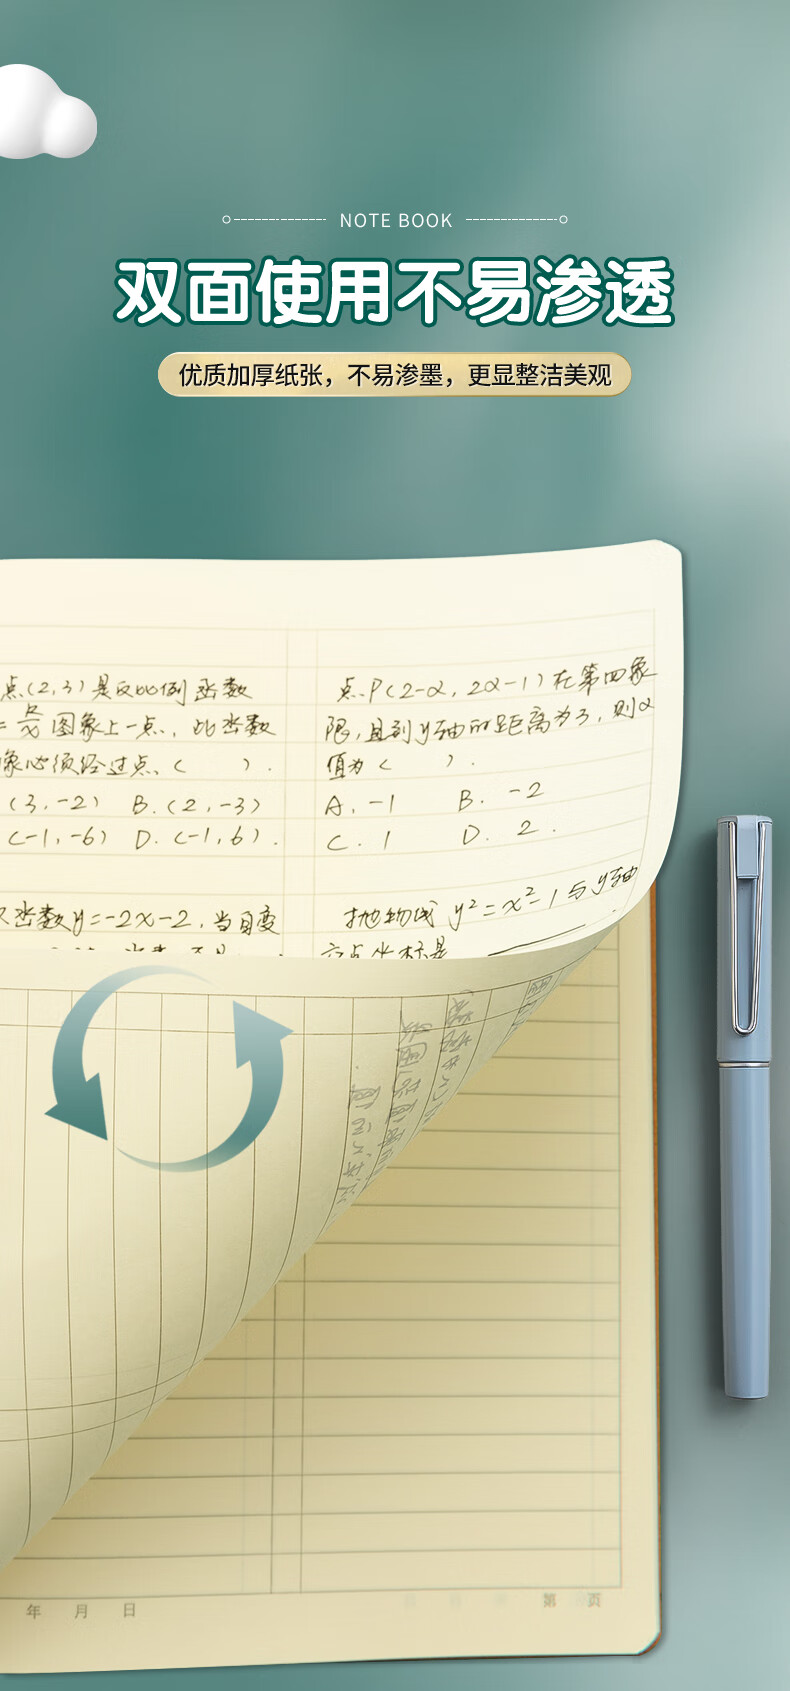 NOTE BOOK
双面使用不易渗透
优质加厚纸张，不易渗墨，更显整洁美观
点(2,3)是反比例函数
=k/x图象上一点，此函数
象必须经过点（　）.
(3,-2) B.(2,-3)
(-1,-6) D.(-1,6).
函数y=-2x-2,当自变
点P(2-a,2a-1)在第四象
限,且到y轴的距离为3,则a
值为（　）.
A.-1 B.-2
C.1 D.2.
抛物线y²=x²-1与y轴
交点坐标是
年 月 日
第 页